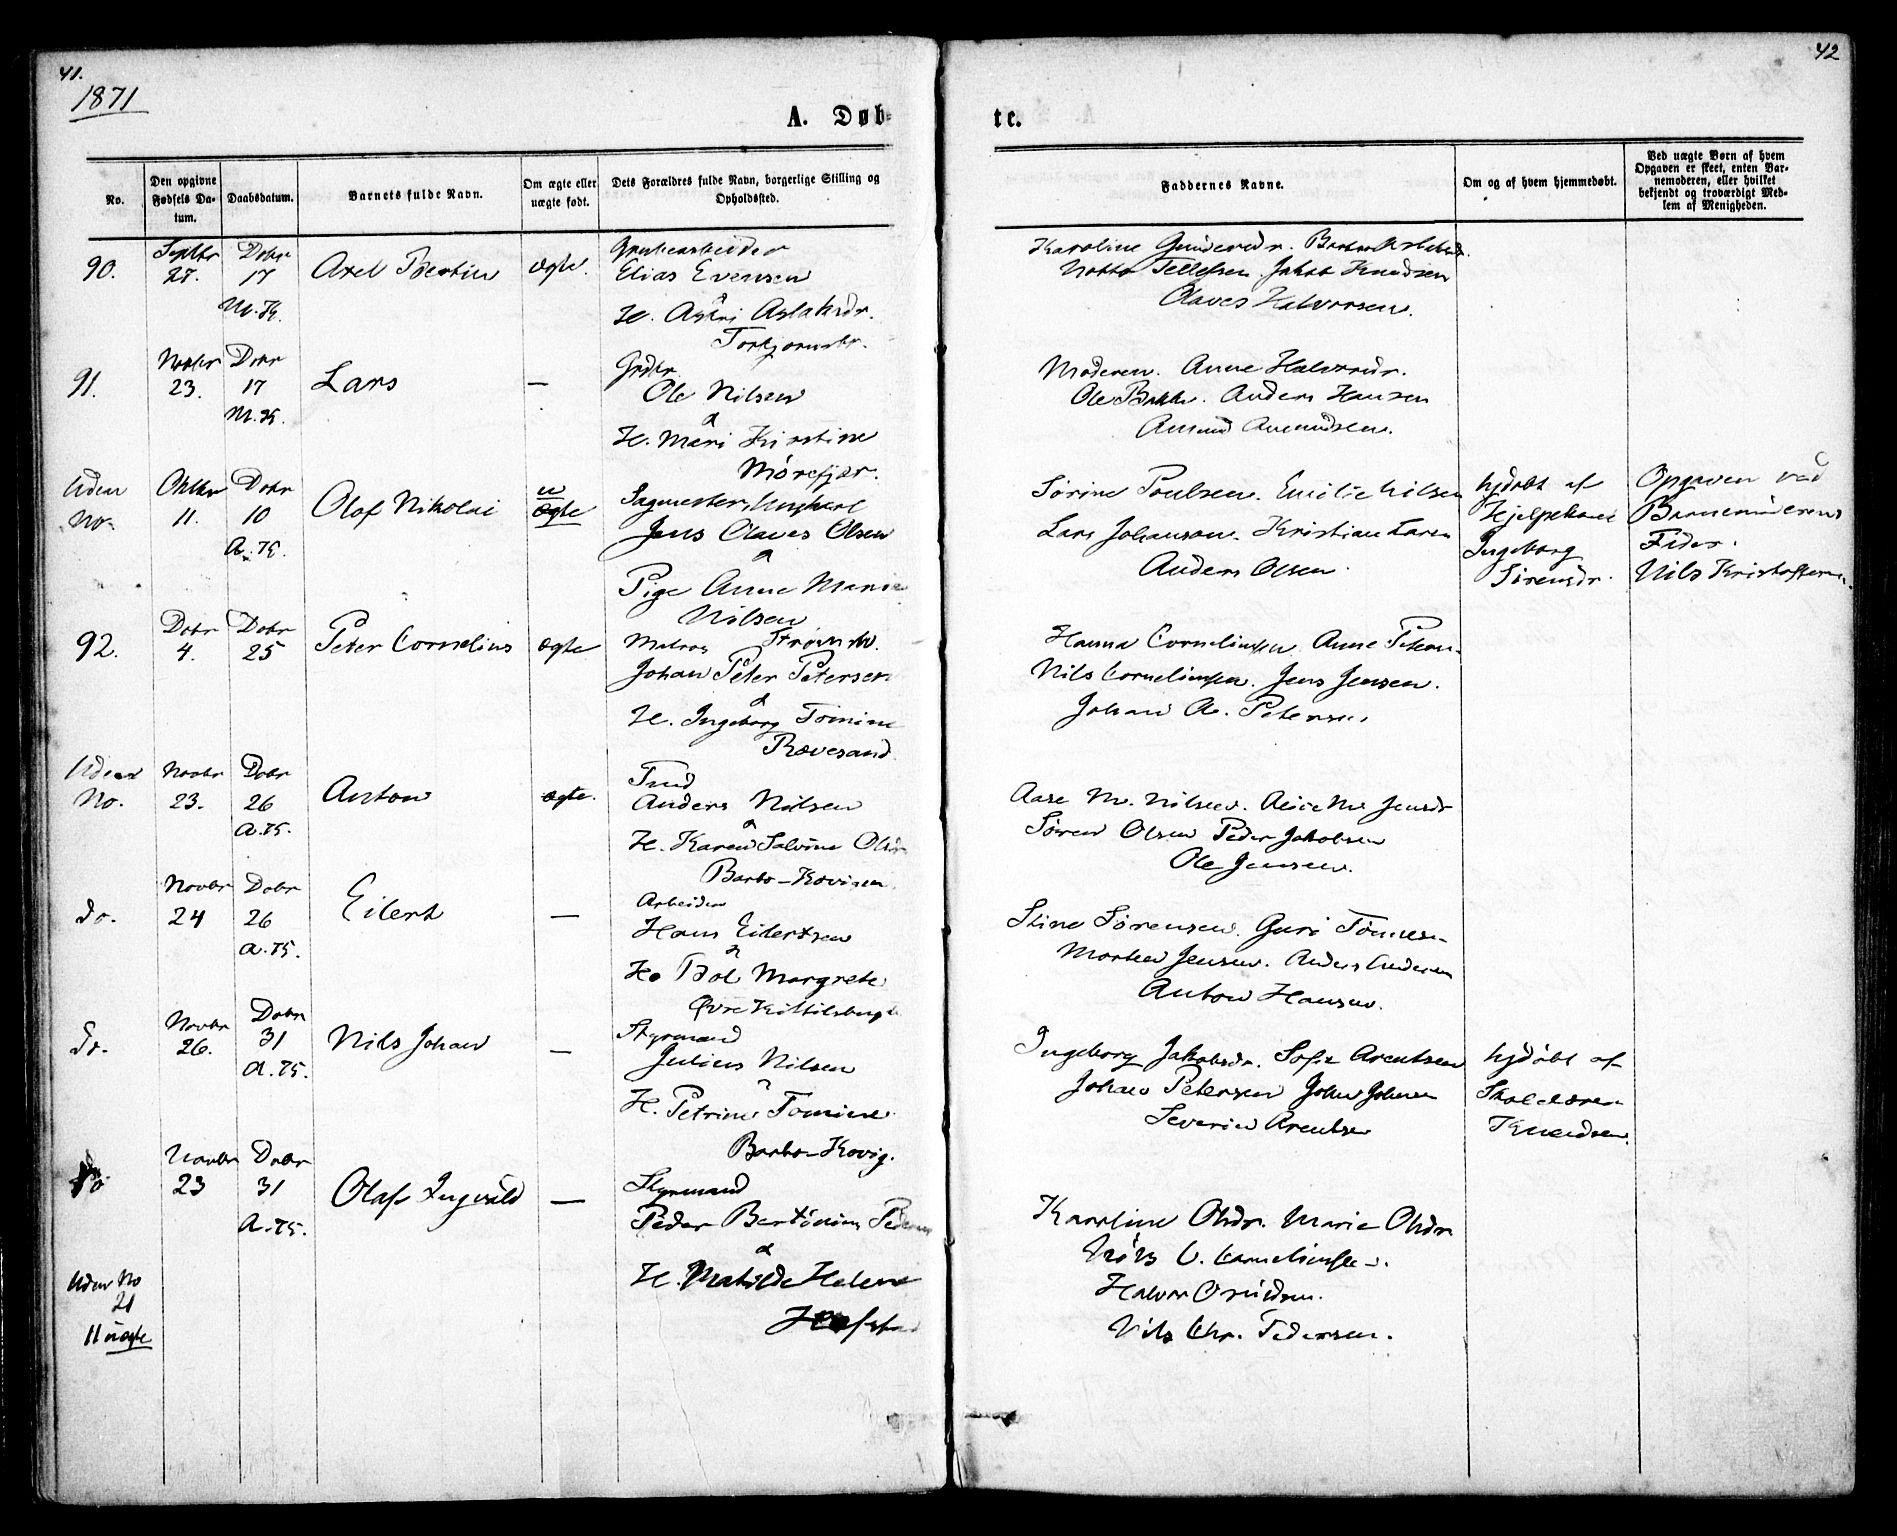 41.
1871
42
A. Døb-
te.
No.
Den opgivne
Fødsels Da-
tum.
Daabsdatum.
Barnets fulde Navn.
Om ægte eller
uægte født.
Dets Forældres fulde Navn, borgerlige Stilling og
Opholdssted.
Faddernes Navne.
Om og af hvem hjemmedøbt.
Ved uægte Børn af hvem
Opgaven er skeet, enten Bar-
nemoderen, eller hvilket
bekjendt og troværdigt Med-
lem af Menigheden.
90.
Septbr
27.
Dcbr
17
M.K.
Axel Bertin
ægte.
Grubearbeider
Elias Evensen
&
H. Astri Aslaksdr.
Torbjørnsbr.
Karoline Gundersdr. Barbro Aslaksdr.
Notto Tellefsen. Jakob Knudsen
Olaves Halvorsen.
91.
Novbr
23.
Dcbr
17
M.K.
Lars
—
Grdbr.
Ole Nilsen
&
H. Mari Kirstine
Mörefjær.
Moderen. Anne Halvorsdr.
Ole Bakke. Anders Hansen
Amund Amundsen.
Uden
No.
Oktbr
11.
Dcbr
10
A.K.
Olaf Nikolai
u
ægte
Sagmester, Ungkarl
Jens Olaves Olsen
&
Pige Anne Marie
Nilsen
Sörine Poulsen. Emilie Nilsen
Lars Johanson. Kristian Larsen
Anders Olsen.
hjdöbt af
Hjelpekone
Ingeborg
Sörensdr.
Opgaven ved
Barnemoderens
Fader.
Nils Kristoffersen.
92.
Dcbr
4.
Dcbr
25
Peter Cornelius
ægte
Matros
Johan Peter Petersen
&
H. Ingeborg Tomine
Rævesand
Hanna Corneliussen Anne Petersen.
Nils Corneliussen. Jens Jensen.
Johan A. Petersen.
Uden
No.
Novbr
23.
Dcbr
26
A.K.
Anton
ægte.
Tmd
Anders Nilsen
&
H. Karen Salvine Olsdr
Barbo-Kovigen.
Aase M. Nilsen. Alice M. Jensdr
Sören Olsen Peder Jakobsen
Ole Jensen.
do.
Novbr
24
Dcbr
26
A.K.
Eilert
—
Arbeider
Hans Eilertsen
&
H. Bol Margrete
Øvre Kittilsbugt
Stine Sörensen. Guri Tönnesen
Morten Jensen. Anders Andersen
Anton Hansen.
do.
Novbr
26.
Dcbr
31
A.K.
Nils Johan
—
Styrmand
Julius Nilsen
&
H. Petrine Tomine
Barbo-Kovig.
Ingeborg Jakobsdr. Sofie Arentsen
Johan Petersen John Johnsen
Severin Arentsen
hjdöbt af
Skolelærer
Knudsen.
do
Novbr
23
Dcbr
31
A.K.
Olaf Ingvald
—
Styrmand
Peder Bertinius Pedersen
&
H. Matilde Helene
Karoline Olsdr. Marie Olsdr
Nils C. Corneliussen.
Halvor
Nils Chr. Pedersen.
Uden No
21
11 uægte